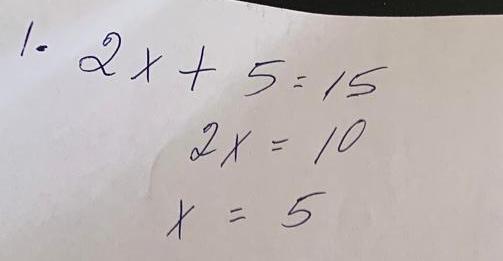 1. 2x + 5 = 15
2x = 10
x = 5